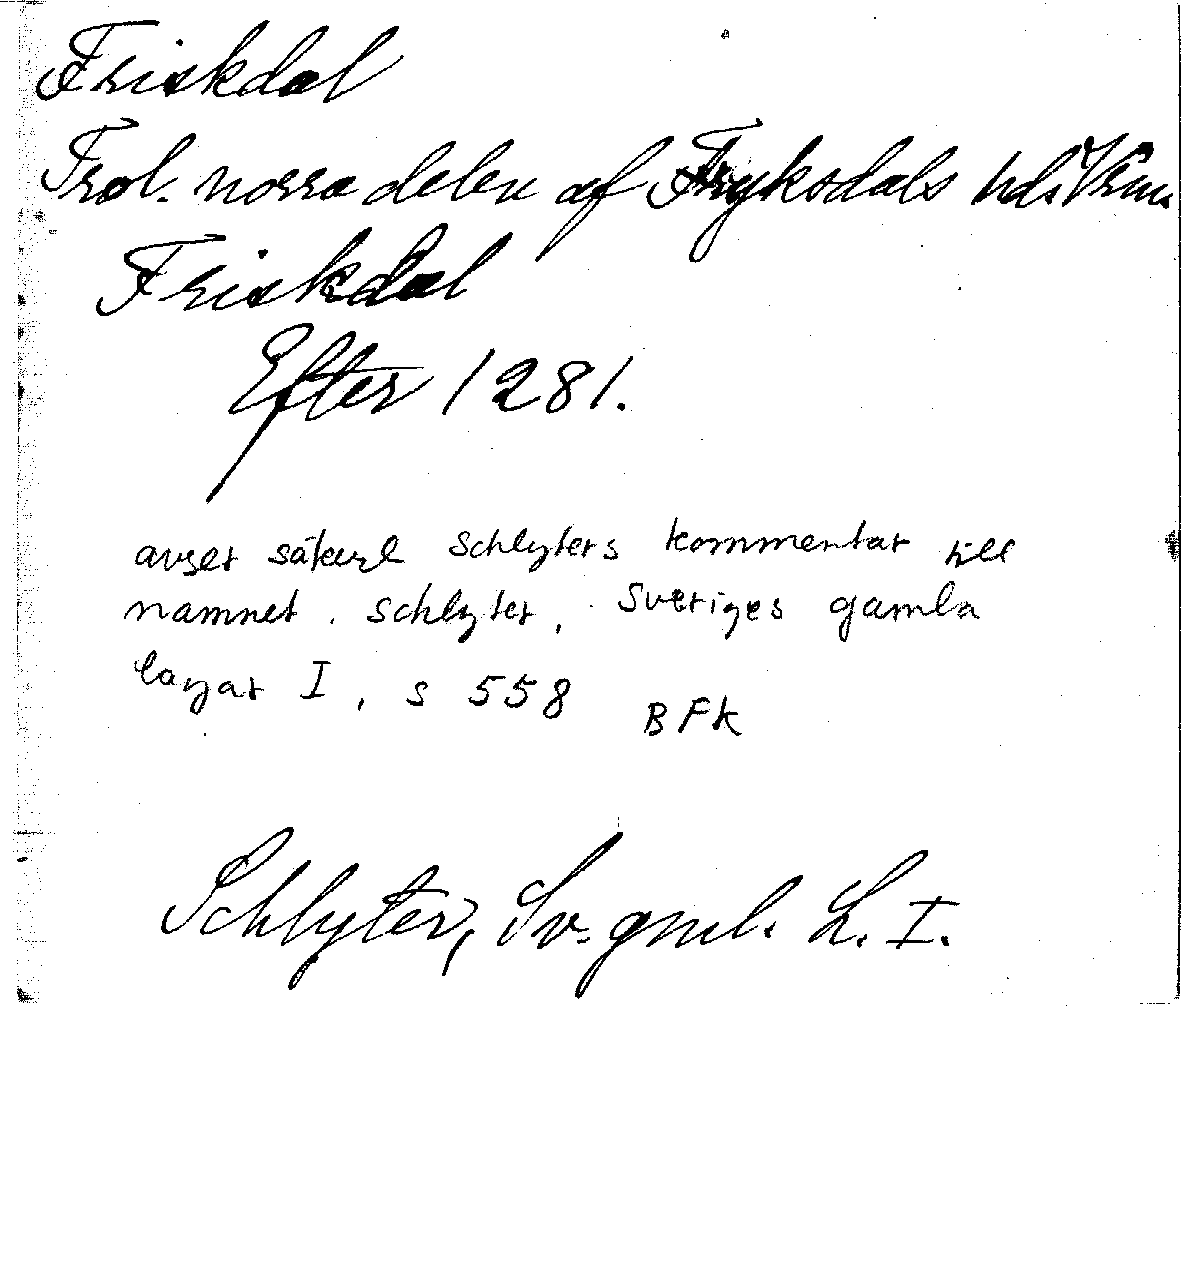 Friskdal
Trol. norra delen af Fryksdals hd. Vrm.
Friskdal
Efter 1281.
avser säkerl Schlyters kommentar till
namnet. Schlyter, Sveriges gamla
lagar I, s 558 BFK
Schlyter, Sv. gml. L. I.